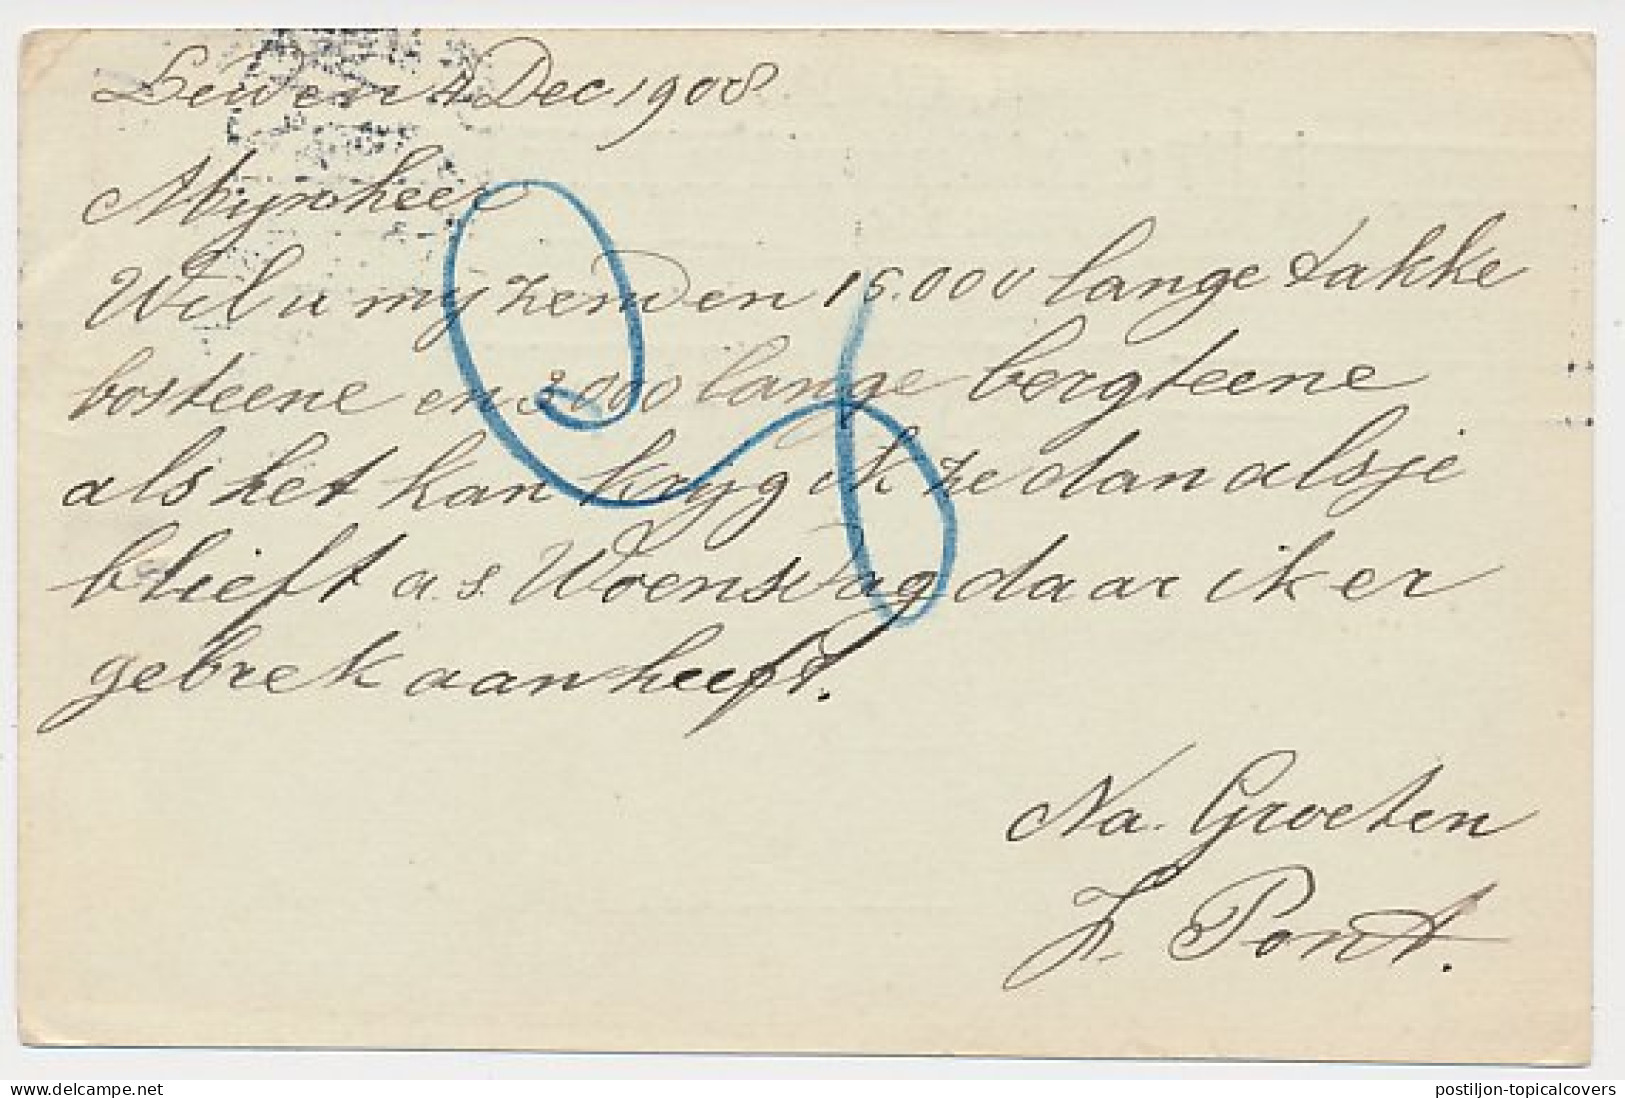 Leiden 4 Dec 1908
Mynheer
Wil u mij zenden 15.000 lange takke
bosteene en 3000 lange bergteene
als het kan krijg ik ze dan als je
blieft a.s. Woensdag daar ik er
gebrek aan heeft.
Na. Groeten
Pont.
postiljon-topicalcovers
delcampe.net